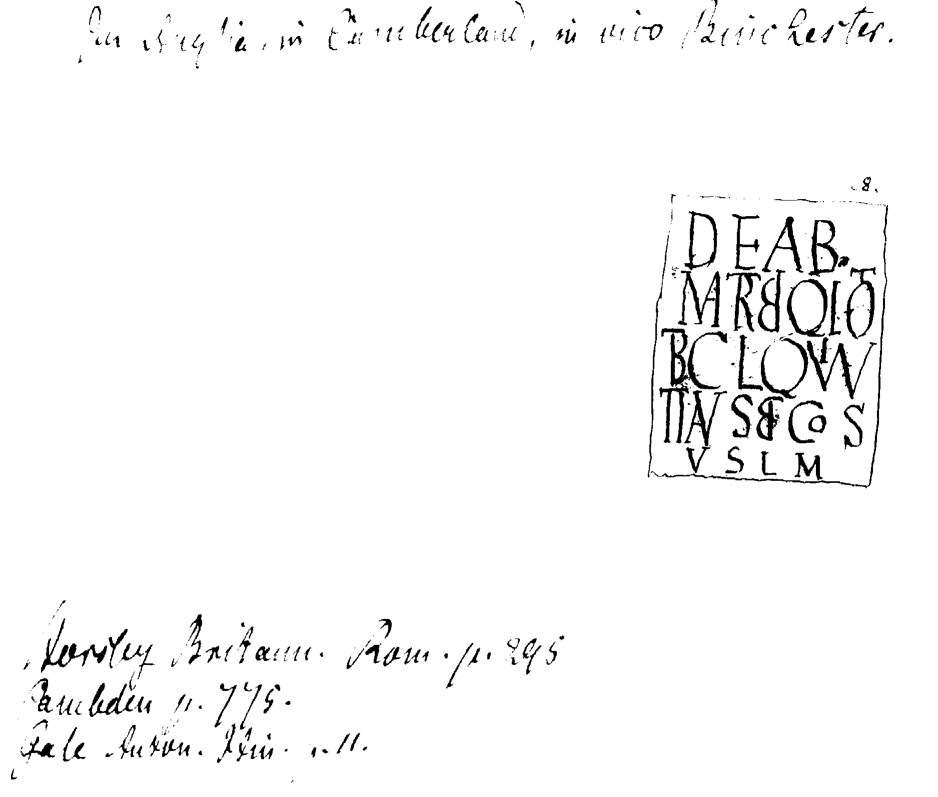 In Anglia, in Cumberland, in vico Binchester.
.8.
DEAB.
MTRBQLO
BCLQVVV
TIAV SBCoS
VSLM
Horsley Britann. Rom. p. 295
Cambden p. 775.
Gale Anton. Itin. p. 11.